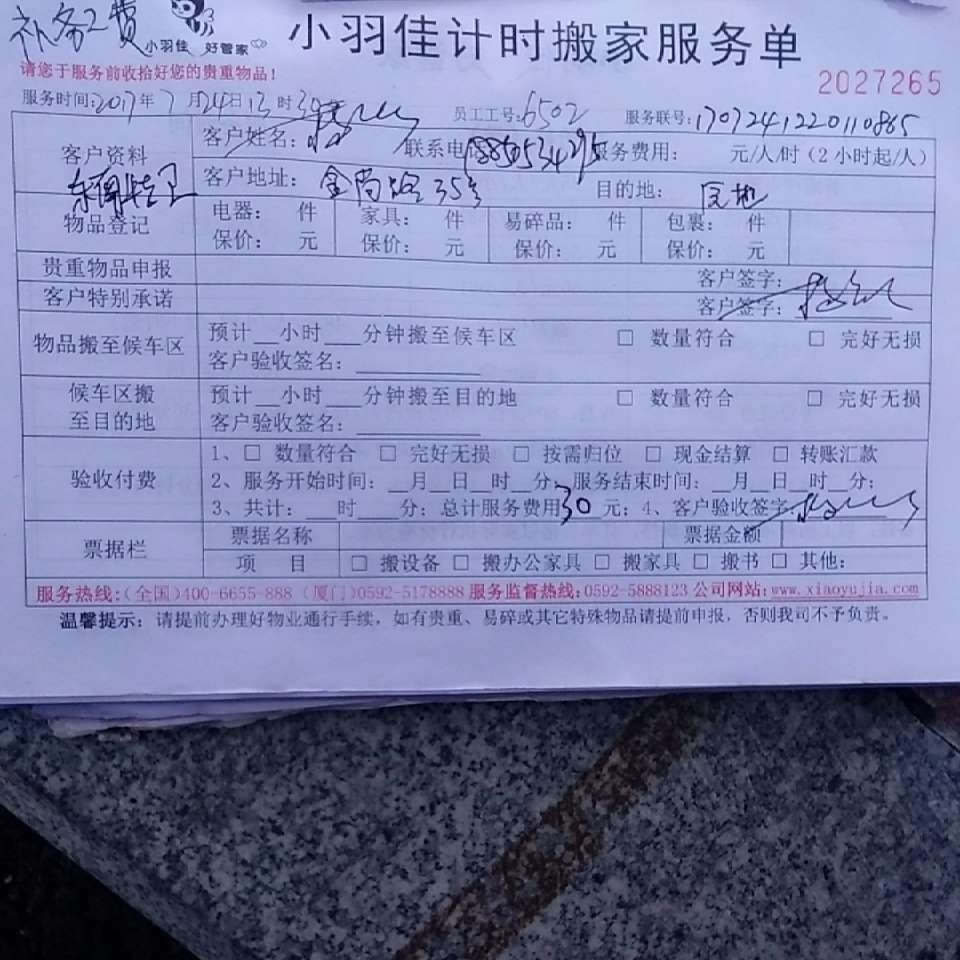 补务工费
小羽佳 好管家
小羽佳计时搬家服务单
请您于服务前收拾好您的贵重物品!
2027265
服务时间:2017年7月24日13时30 员工工号:6502 服务联号:1707241220110865
客户资料
客户姓名: 联系电话 服务费用: 元/人/时(2小时起/人)
客户地址: 金尚路35号 目的地:
物品登记
电器: 件 家具: 件 易碎品: 件 包裹: 件
保价: 元 保价: 元 保价: 元 保价: 元
贵重物品申报 客户签字:
客户特别承诺 客户签字:
物品搬至候车区
预计__小时___分钟搬至候车区 □ 数量符合 □ 完好无损
客户验收签名:
候车区搬至目的地
预计__小时___分钟搬至目的地 □ 数量符合 □ 完好无损
客户验收签名:
验收付费
1、□ 数量符合 □ 完好无损 □ 按需归位 □ 现金结算 □ 转账汇款
2、服务开始时间:__月__日__时__分;服务结束时间:__月__日__时__分;
3、共计:___时___分;总计服务费用30元;4、客户验收签字
票据栏
票据名称 票据金额
项 目 □ 搬设备 □ 搬办公家具 □ 搬家具 □ 搬书 □ 其他:
服务热线:(全国)400-6655-888(厦门)0592-5178888 服务监督热线:0592-5888123 公司网站:www.xiaoyujia.com
温馨提示:请提前办理好物业通行手续,如有贵重、易碎或其它特殊物品请提前申报,否则我司不予负责。